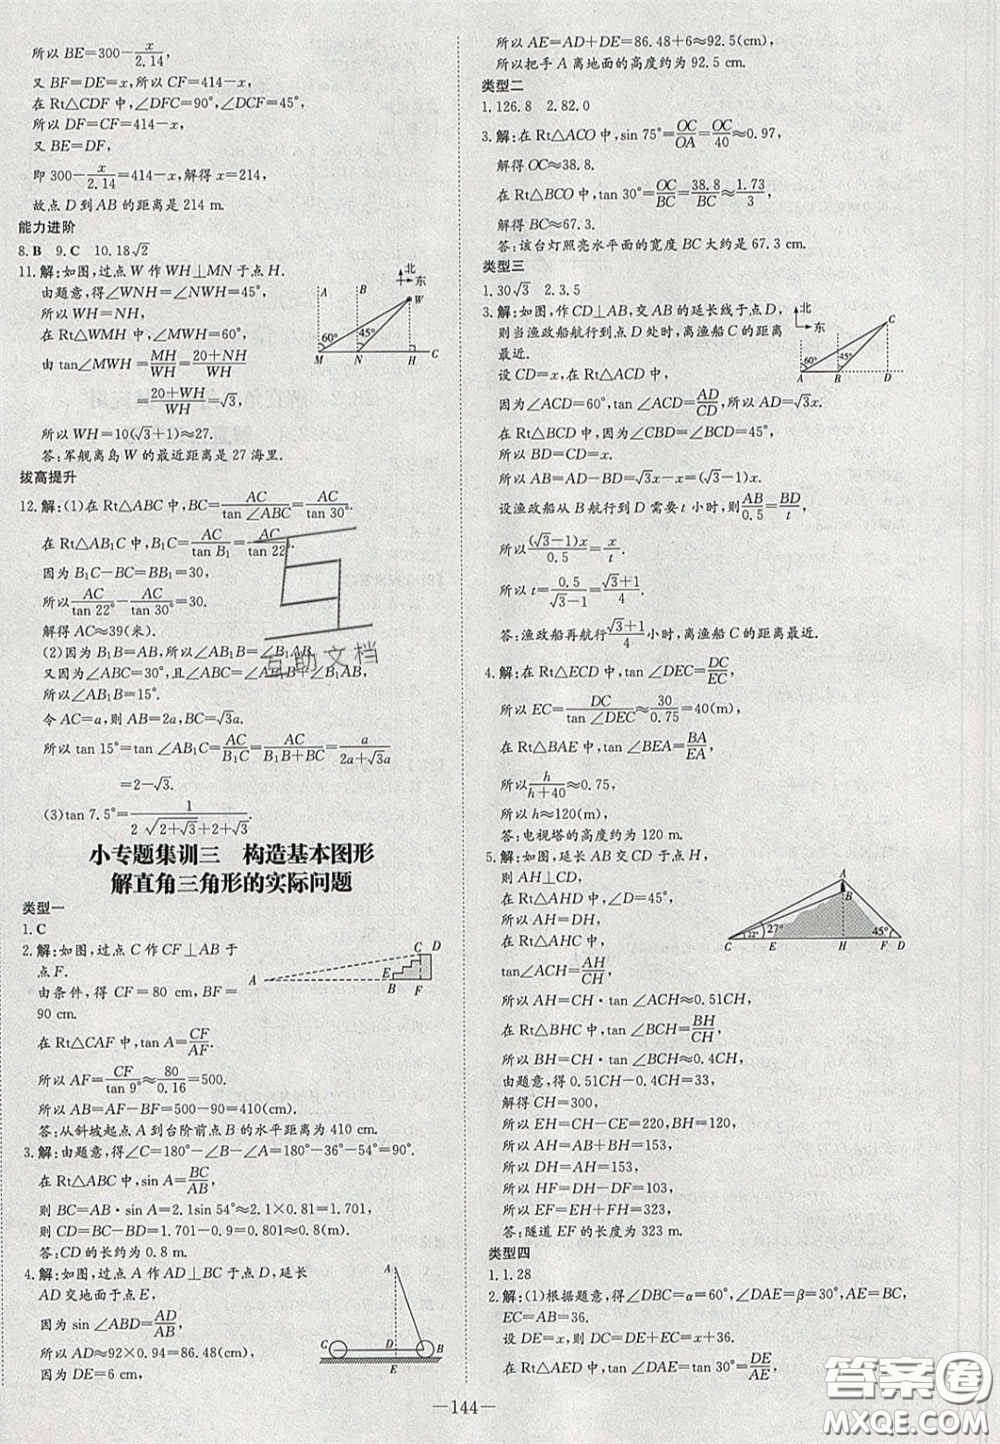 所以 BE=300-x/2.14,
又 BF=DE=x,所以 CF=414-x,
在 Rt△CDF 中,∠DFC=90°,∠CDF=45°,
所以 DF=CF=414-x,
又 BE=DF,
即 300-x/2.14=414-x,解得 x=214,
故点 D 到 AB 的距离是 214 m.
能力进阶
8.B 9.C 10.18√2
11.解:如图,过点 W 作 WH⊥MN 于点 H.
由题意,得∠WNH=∠NWH=45°,
所以 WH=NH,
在 Rt△WMH 中,∠MWH=60°,
由 tan∠MWH=MH/WH=(20+NH)/WH
=(20+WH)/WH=√3,
所以 WH=10(√3+1)≈27.
答:军舰离岛 W 的最近距离是 27 海里.
A B 北 东 W 60° 45° M N H C
拔高提升
12.解:(1)在 Rt△ABC 中,BC=AC/tan∠ABC=AC/tan 30°.
在 Rt△AB₁C 中,B₁C=AC/tan B₁=AC/tan 22°.
因为 B₁C-BC=BB₁=30,
所以 AC/tan 22°-AC/tan 30°=30.
解得 AC≈39(米).
(2)因为 B₁B=AB,所以∠B₁=∠B₁AB,
又因为∠ABC=30°,且∠ABC=∠B₁+∠B₁AB,
所以∠AB₁B=15°.
令 AC=a,则 AB=2a,BC=√3a.
所以 tan 15°=tan∠AB₁C=AC/B₁C=AC/(B₁B+BC)=a/(2a+√3a)
=2-√3.
(3)tan 7.5°=1/(2√(2+√3)+2+√3).
互助文档
小专题集训三 构造基本图形
解直角三角形的实际问题
类型一
1.C
2.解:如图,过点 C 作 CF⊥AB 于
点 F.
由条件,得 CF=80 cm,BF=
90 cm.
在 Rt△CAF 中,tan A=CF/AF.
所以 AF=CF/tan 9°≈80/0.16=500.
所以 AB=AF-BF=500-90=410(cm).
答:从斜坡起点 A 到台阶前点 B 的水平距离为 410 cm.
C D A E B F
3.解:由题意,得∠C=180°-∠B-∠A=180°-36°-54°=90°.
在 Rt△ABC 中,sin A=BC/AB,
则 BC=AB·sin A=2.1sin 54°≈2.1×0.81=1.701,
则 CD=BC-BD=1.701-0.9=0.801≈0.8(m).
答:CD 的长约为 0.8 m.
4.解:如图,过点 A 作 AD⊥BC 于点 D,延长
AD 交地面于点 E,
因为 sin∠ABD=AD/AB,
所以 AD≈92×0.94=86.48(cm),
因为 DE=6 cm,
A C D B E
所以 AE=AD+DE=86.48+6≈92.5(cm)
所以把手 A 离地面的高度约为 92.5 cm.
类型二
1.126.8 2.82.0
3.解:在 Rt△ACO 中,sin 75°=OC/OA=OC/40≈0.97,
解得 OC≈38.8.
在 Rt△BCO 中,tan 30°=OC/BC=38.8/BC≈1.73/3,
解得 BC≈67.3.
答:该台灯照亮水平面的宽度 BC 大约是 67.3 cm.
类型三
1.30√3 2.3.5
3.解:如图,作 CD⊥AB,交 AB 的延长线于点 D,
则当渔政船航行到点 D 处时,离渔船 C 的距离
最近.
设 CD=x,在 Rt△ACD 中,
因为∠ACD=60°,tan∠ACD=AD/CD,所以 AD=√3x.
在 Rt△CBD 中,因为∠CBD=∠BCD=45°,
所以 BD=CD=x.
所以 AB=AD-BD=√3x-x=(√3-1)x.
设渔政船从 B 航行到 D 需要 t 小时,则 AB/0.5=BD/t,
所以 (√3-1)x/0.5=x/t.
所以 t=0.5/(√3-1)=(√3+1)/4.
答:渔政船再航行 (√3+1)/4 小时,离渔船 C 的距离最近.
北 东 C 60° 45° A B D
4.解:在 Rt△ECD 中,tan∠DEC=DC/EC,
所以 EC=DC/tan∠DEC≈30/0.75=40(m),
在 Rt△BAE 中,tan∠BEA=BA/EA,
所以 h/(h+40)≈0.75,
所以 h≈120(m).
答:电视塔的高度约为 120 m.
5.解:如图,延长 AB 交 CD 于点 H,
则 AH⊥CD,
在 Rt△AHD 中,∠D=45°,
所以 AH=DH,
在 Rt△AHC 中,
tan∠ACH=AH/CH,
所以 AH=CH·tan∠ACH≈0.51CH,
在 Rt△BHC 中,tan∠BCH=BH/CH,
所以 BH=CH·tan∠BCH≈0.4CH,
由题意,得 0.51CH-0.4CH=33,
解得 CH=300,
所以 EH=CH-CE=220,
BH=120,
所以 AH=AB+BH=153,
所以 DH=AH=153,
所以 HF=DH-DF=103,
所以 EF=EH+FH=323,
答:隧道 EF 的长度为 323 m.
A B 22° 27° 45° C E H F D
类型四
1.1.28
2.解:(1)根据题意,得∠DBC=α=60°,∠DAE=β=30°,AE=BC,
EC=AB=36.
设 DE=x,则 DC=DE+EC=x+36,
在 Rt△AED 中,tan∠DAE=tan30°=DE/AE,
144
答案圈
MXQE.COM